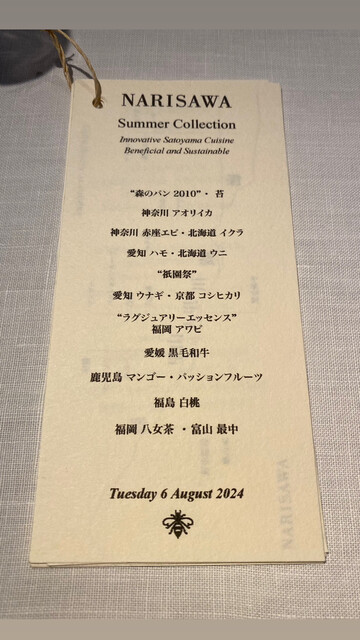 NARISAWA
Summer Collection
Innovative Satoyama Cuisine
Beneficial and Sustainable
“森のパン 2010”・ 苔
神奈川 アオリイカ
神奈川 赤座エビ・北海道 イクラ
愛知 ハモ・北海道 ウニ
“祇園祭”
愛知 ウナギ・京都 コシヒカリ
“ラグジュアリーエッセンス”
福岡 アワビ
愛媛 黒毛和牛
鹿児島 マンゴー・パッションフルーツ
福島 白桃
福岡 八女茶 ・富山 最中
Tuesday 6 August 2024
NARISAWA